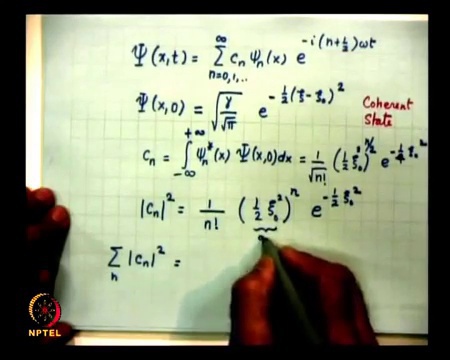 Ψ(x,t) = ∑_{n=0,1,..}^{∞} c_n ψ_n(x) e^{-i(n+½)ωt}
Ψ(x,0) = √(γ/√π) e^{-½(ξ-ξ₀)²}
Coherent State
c_n = ∫_{-∞}^{+∞} ψ_n*(x) Ψ(x,0)dx = 1/√n! (½ ξ₀²)^{n/2} e^{-¼ξ₀²}
|c_n|² = 1/n! (½ ξ₀²)^n e^{-½ξ₀²}
∑_n |c_n|² =
NPTEL